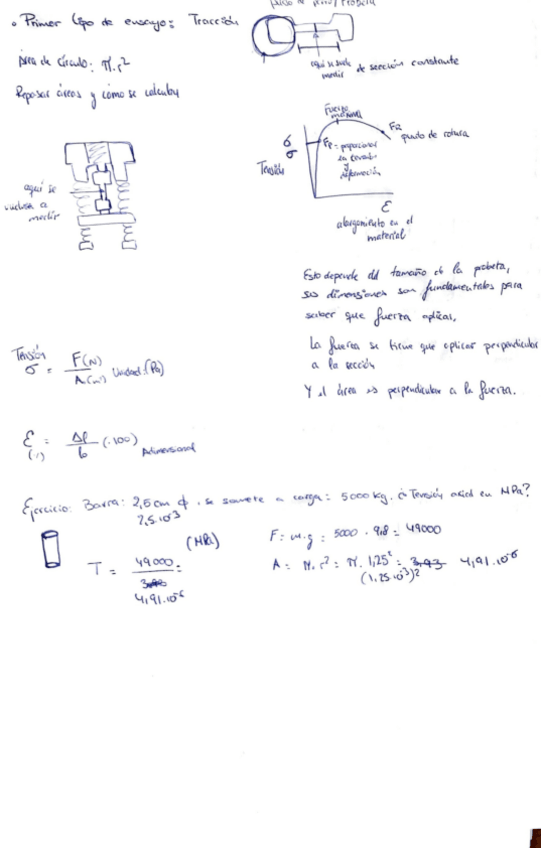 • Primer tipo de ensayo: Tracción
Área de círculo: π.r²
Repasar áreas y cómo se calculan
aquí se suele
medir
de sección constante
aquí se
vuelve a
medir
Fuerza
máxima
FR
punto de rotura
Fp = proporcional
deformación
σ
Tensión
ε
alargamiento en el
material
Esto depende del tamaño de la probeta,
sus dimensiones son fundamentales para
saber que fuerza aplicar,
La fuerza se tiene que aplicar perpendicular
a la sección
Y el área es perpendicular a la fuerza.
Tensión
σ = F(N) / A(m²) Unidad: (Pa)
ε = Δl / lo (.100) Adimensional
Ejercicio: Barra: 2,5 cm ϕ, se somete a carga: 5000 kg. ¿Tensión axial en MPa?
2,5.10⁻³
(MPa)
F = m.g = 5000 . 9,8 = 49000
T = 49000 / 4,91.10⁻⁶ =
A = π.r² = π. 1,25² = 3,93 4,91.10⁻⁶
(1,25.10⁻³)²